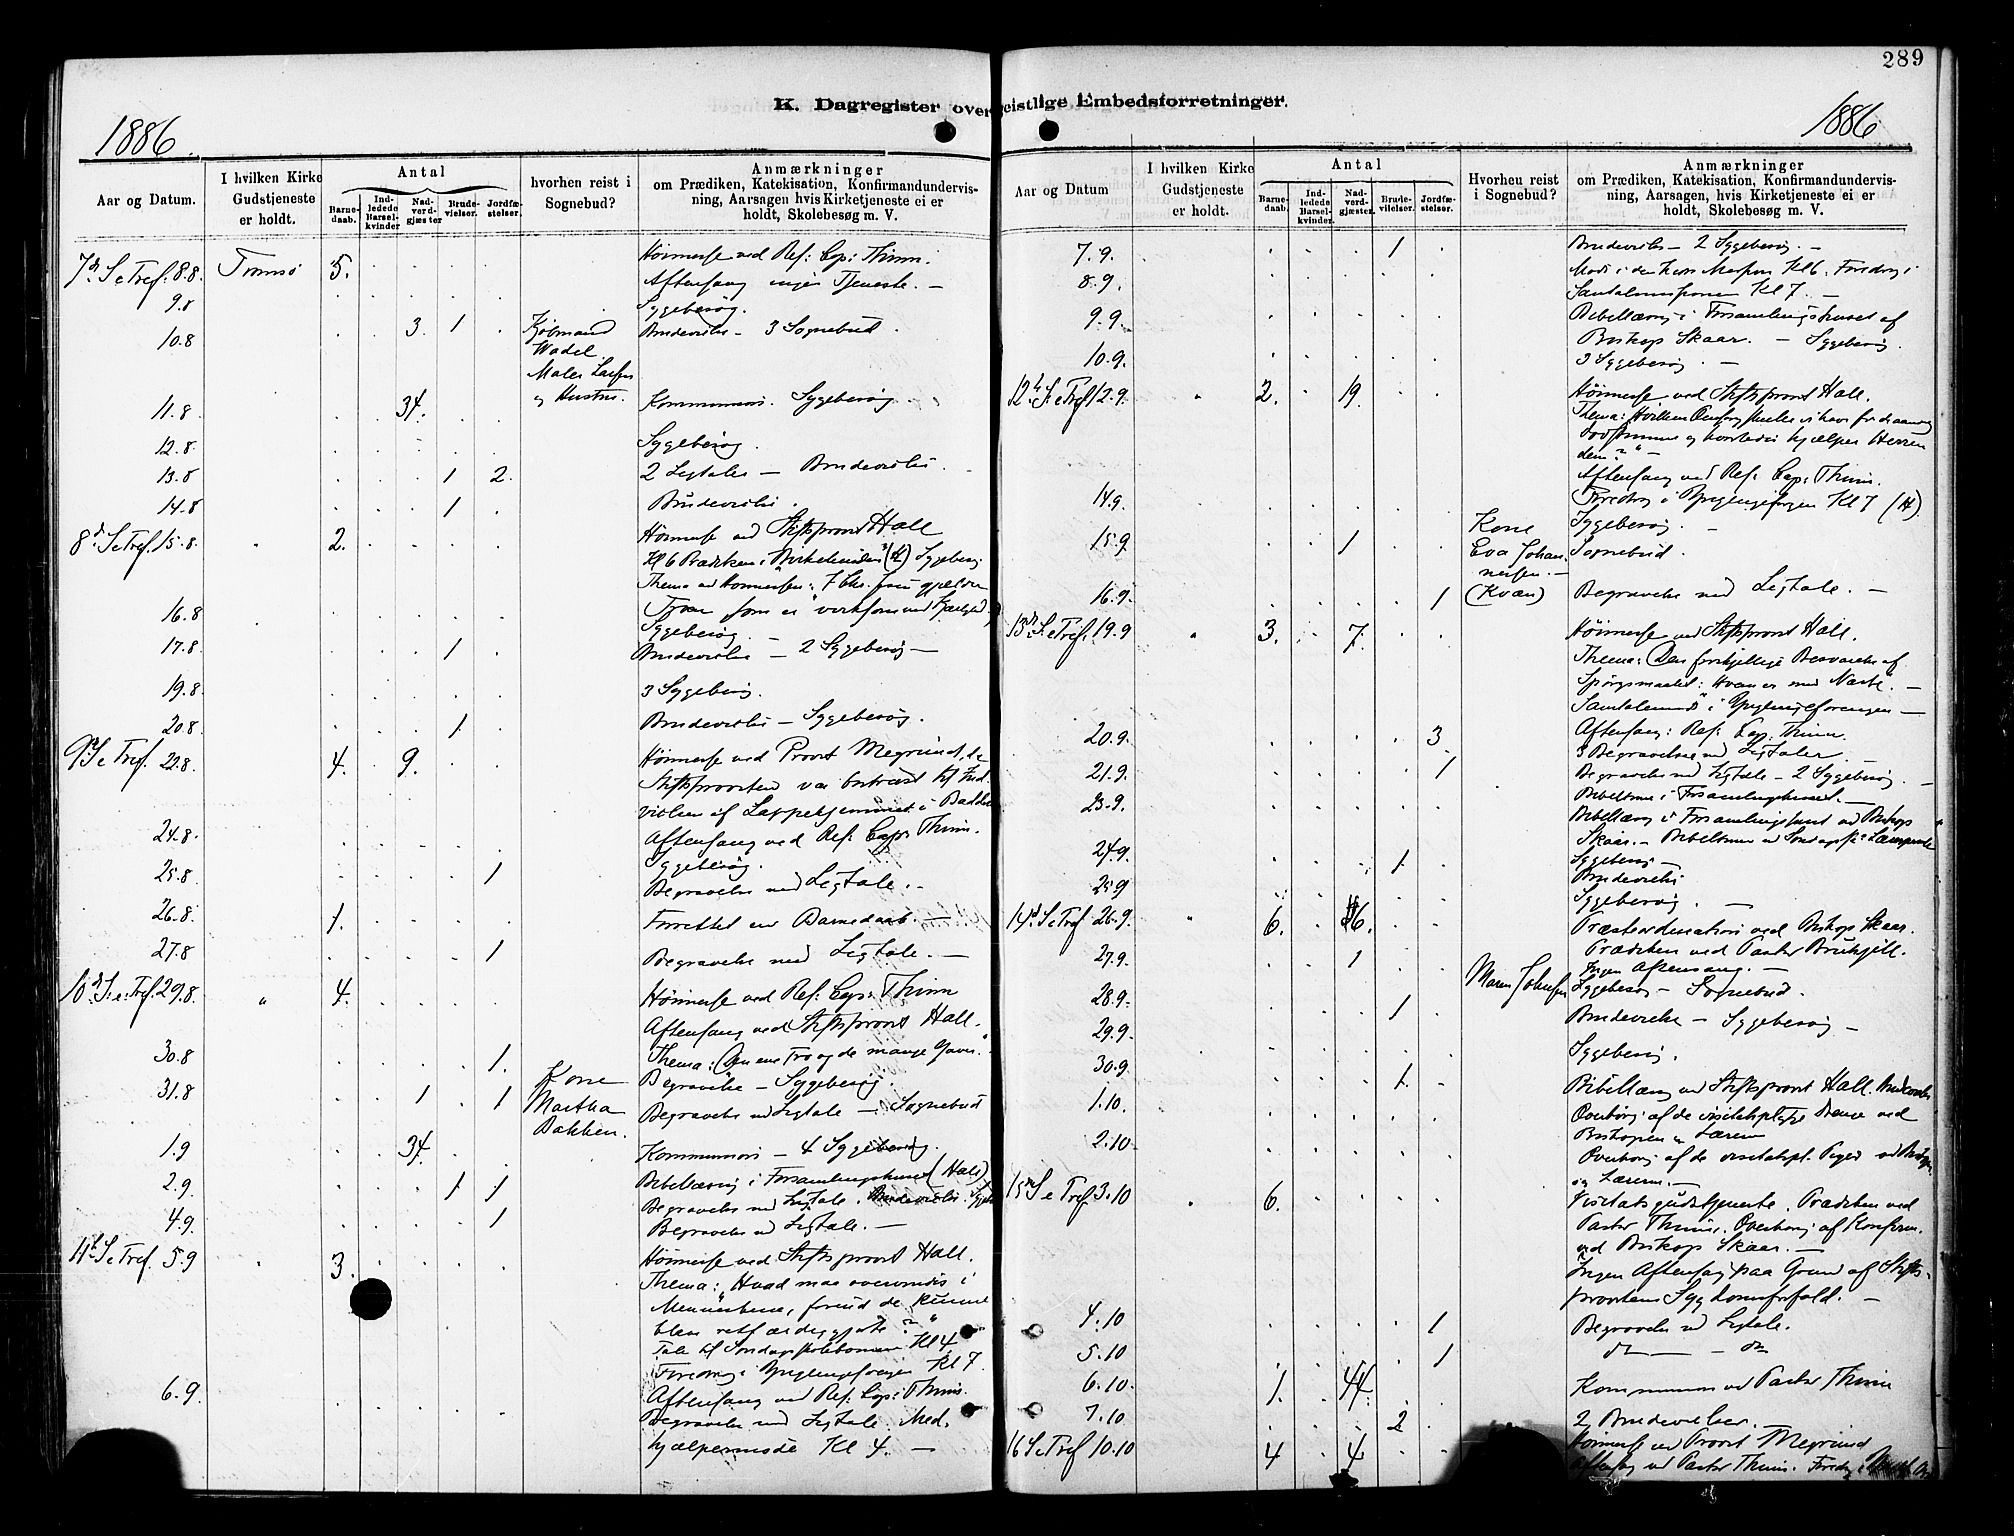 289
K. Dagregister over geistlige Embedsforretninger.
1886.
1886
Aar og Datum.
I hvilken Kirke Gudstjeneste er holdt.
Antal
Barnedaab.
Indledede Barselkvinder
Nadverdgjæster
Brudevielser.
Jordfæstelser.
hvorhen reist i Sognebud?
Anmærkninger
om Prædiken, Katekisation, Konfirmandundervisning, Aarsagen hvis Kirketjeneste ei er holdt, Skolebesøg m. V.
7d S. e. Tref. 8.8. Tromsø 5. Høimesse ved Res: Cap: Thinn.
Aftensang ingen Tjeneste. —
9.8 Sygebesøg.
10.8 3. 1 Kjøbmand Brudevielse — 3 Sognebud.
Wadel
Maler Larsen
og Hustru.
11.8 34. Kommunion. Sygebesøg.
12.8. Sygebesøg.
13.8 1 2. 2 Ligtaler — Brudevielse.
14.8 1 Brudevielse.
8d S. e Tref. 15.8. " 2. Høimesse ved Stiftsprovst Hall
Kl 6 Prædiken i (H) Sygebesøg
16.8
Sygebesøg. —
17.8. 1 Brudevielse — 2 Sygebesøg —
19.8. 3 Sygebesøg.
20.8 1. Brudevielse — Sygebesøg.
9d S e Tref. 22.8. 4. 9. Høimesse ved Provst Megrund, da
Stiftsprovsten var
af Lappehjemmet i
Aftensang ved Res: Cap: Thinn.
24.8. Sygebesøg.
25.8 1 Begravelse med Ligtale. —
26.8. 1. Forrettet en Barnedaab. —
27.8 1 Begravelse med Ligtale. —
10d S. e. Tref. 29.8. " 4. Høimesse ved Res: Cap: Thinn
Aftensang ved Stiftsprovst Hall.
Thema: Den ene Tro og de mange Gaver."
30.8 1. Begravelse — Sygebesøg.
31.8 1 1 Kone Begravelse med Ligtale — Sognebud
Martha
Bakken.
1.9 34. Kommunion — 4 Sygebesøg.
2.9. 1 1 Bibellæsning i Forsamlingshuset (Hall)
Begravelse med Ligtale. Brudevielse.
4.9. 1 Begravelse m Ligtale. —
11d S e Tref. 5.9 " 3. Høimesse ved Stiftsprovst Hall.
Thema: Hvad maa overvindes i
Mennesker, forud de kunne
blive retfærdiggjorte?"
Tale til Søndagsskolebørnene Kl 4.
Foredrag i Ynglingeforeningen Kl 7.
Aftensang ved Res: Cap: Thinn.
6.9. Begravelse med Ligtale. Med.
hjælpermøde Kl 4. —
Aar og Datum
I hvilken Kirke Gudstjeneste er holdt.
Antal
Barnedaab.
Indledede Barselkvinder
Nadverdgjæster.
Brudevielser.
Jordfæstelser.
Hvorhen reist i Sognebud?
Anmærkninger
om Prædiken, Katekisation, Konfirmandundervisning, Aarsagen, hvis Kirketjeneste ei er holdt, Skolebesøg m. V.
7.9. 1 Brudevielse — 2 Sygebesøg. —
8.9. Kl 6. Foredrag i
Kl 7. —
9.9. Bibellæsning i Forsamlingshuset af
Biskop Skaar. — Sygebesøg.
10.9. 3 Sygebesøg. —
12d S. e Tref 12.9. " 2. 19. Høimesse ved Stiftsprovst Hall.
Thema:
og hvorledes hjælper Herren
dem?" —
Aftensang ved Res: Cap: Thinn.
14.9. Foredrag i Ynglingeforeningen Kl 7 (H)
Kone Sygebesøg. —
15.9 1 Eva Johannessen. — Sognebud.
(Kvæn)
16.9. 1 Begravelse med Ligtale. —
13d S. e Tref. 19.9 " 3. 7. Høimesse ved Stiftsprovst Hall.
Thema: Den forskjellige Besvarelse af
Spørgsmaalet: Hvem er min Næste". —
i Ynglingeforeningen —
Aftensang: Res: Cap: Thinn.
20.9. 3. 3 Begravelser med Ligtaler. —
21.9. 1 Begravelse med Ligtale — 2 Sygebesøg. —
Bibeltime i Forsamlingshuset. —
23.9. Bibellæsning i Forsamlingshuset ved Biskop
Skaar. —
24.9. 1. Sygebesøg —
Brudevielse
25.9 Sygebesøg. —
14d S. e Tref 26.9. " 6. 16. Præsteordination ved Biskop Skaar.
Prædiken ved Pastor
Ingen Aftensang. —
27.9. 1 Maren Johnsen Sygebesøg — Sognebud.
28.9. 1 Brudevielse — Sygebesøg —
29.9. Sygebesøg.
30.9 1. Bibellæsning ved Stiftsprovst Hall. Brudevielse
1.10. Overhøring af de visitatspligtige Drenge ved
Biskopen og Læreren
2.10 Overhøring af de visitatspl. Piger ved Biskopen
og Læreren. —
15d S e Tref. 3.10 " 6. Visitatsgudstjeneste. Prædiken ved
Pastor Thinn. Overhøring af Konfirm.
ved Biskop Skaar. —
Ingen Aftensang paa Grund af Stifts-
provstens Sygdomsforfald. —
4.10 1 Begravelse m Ligtale.
5.10 1 do — do
6.10. 1. 44. Kommunion ved Pastor Thinn
7.10 2 2 Brudevielser. —
16 S e Tref 10.10 4 4. Høimesse ved Provst Megrund
Aftensang ved Pastor Thinn. Foredrag i